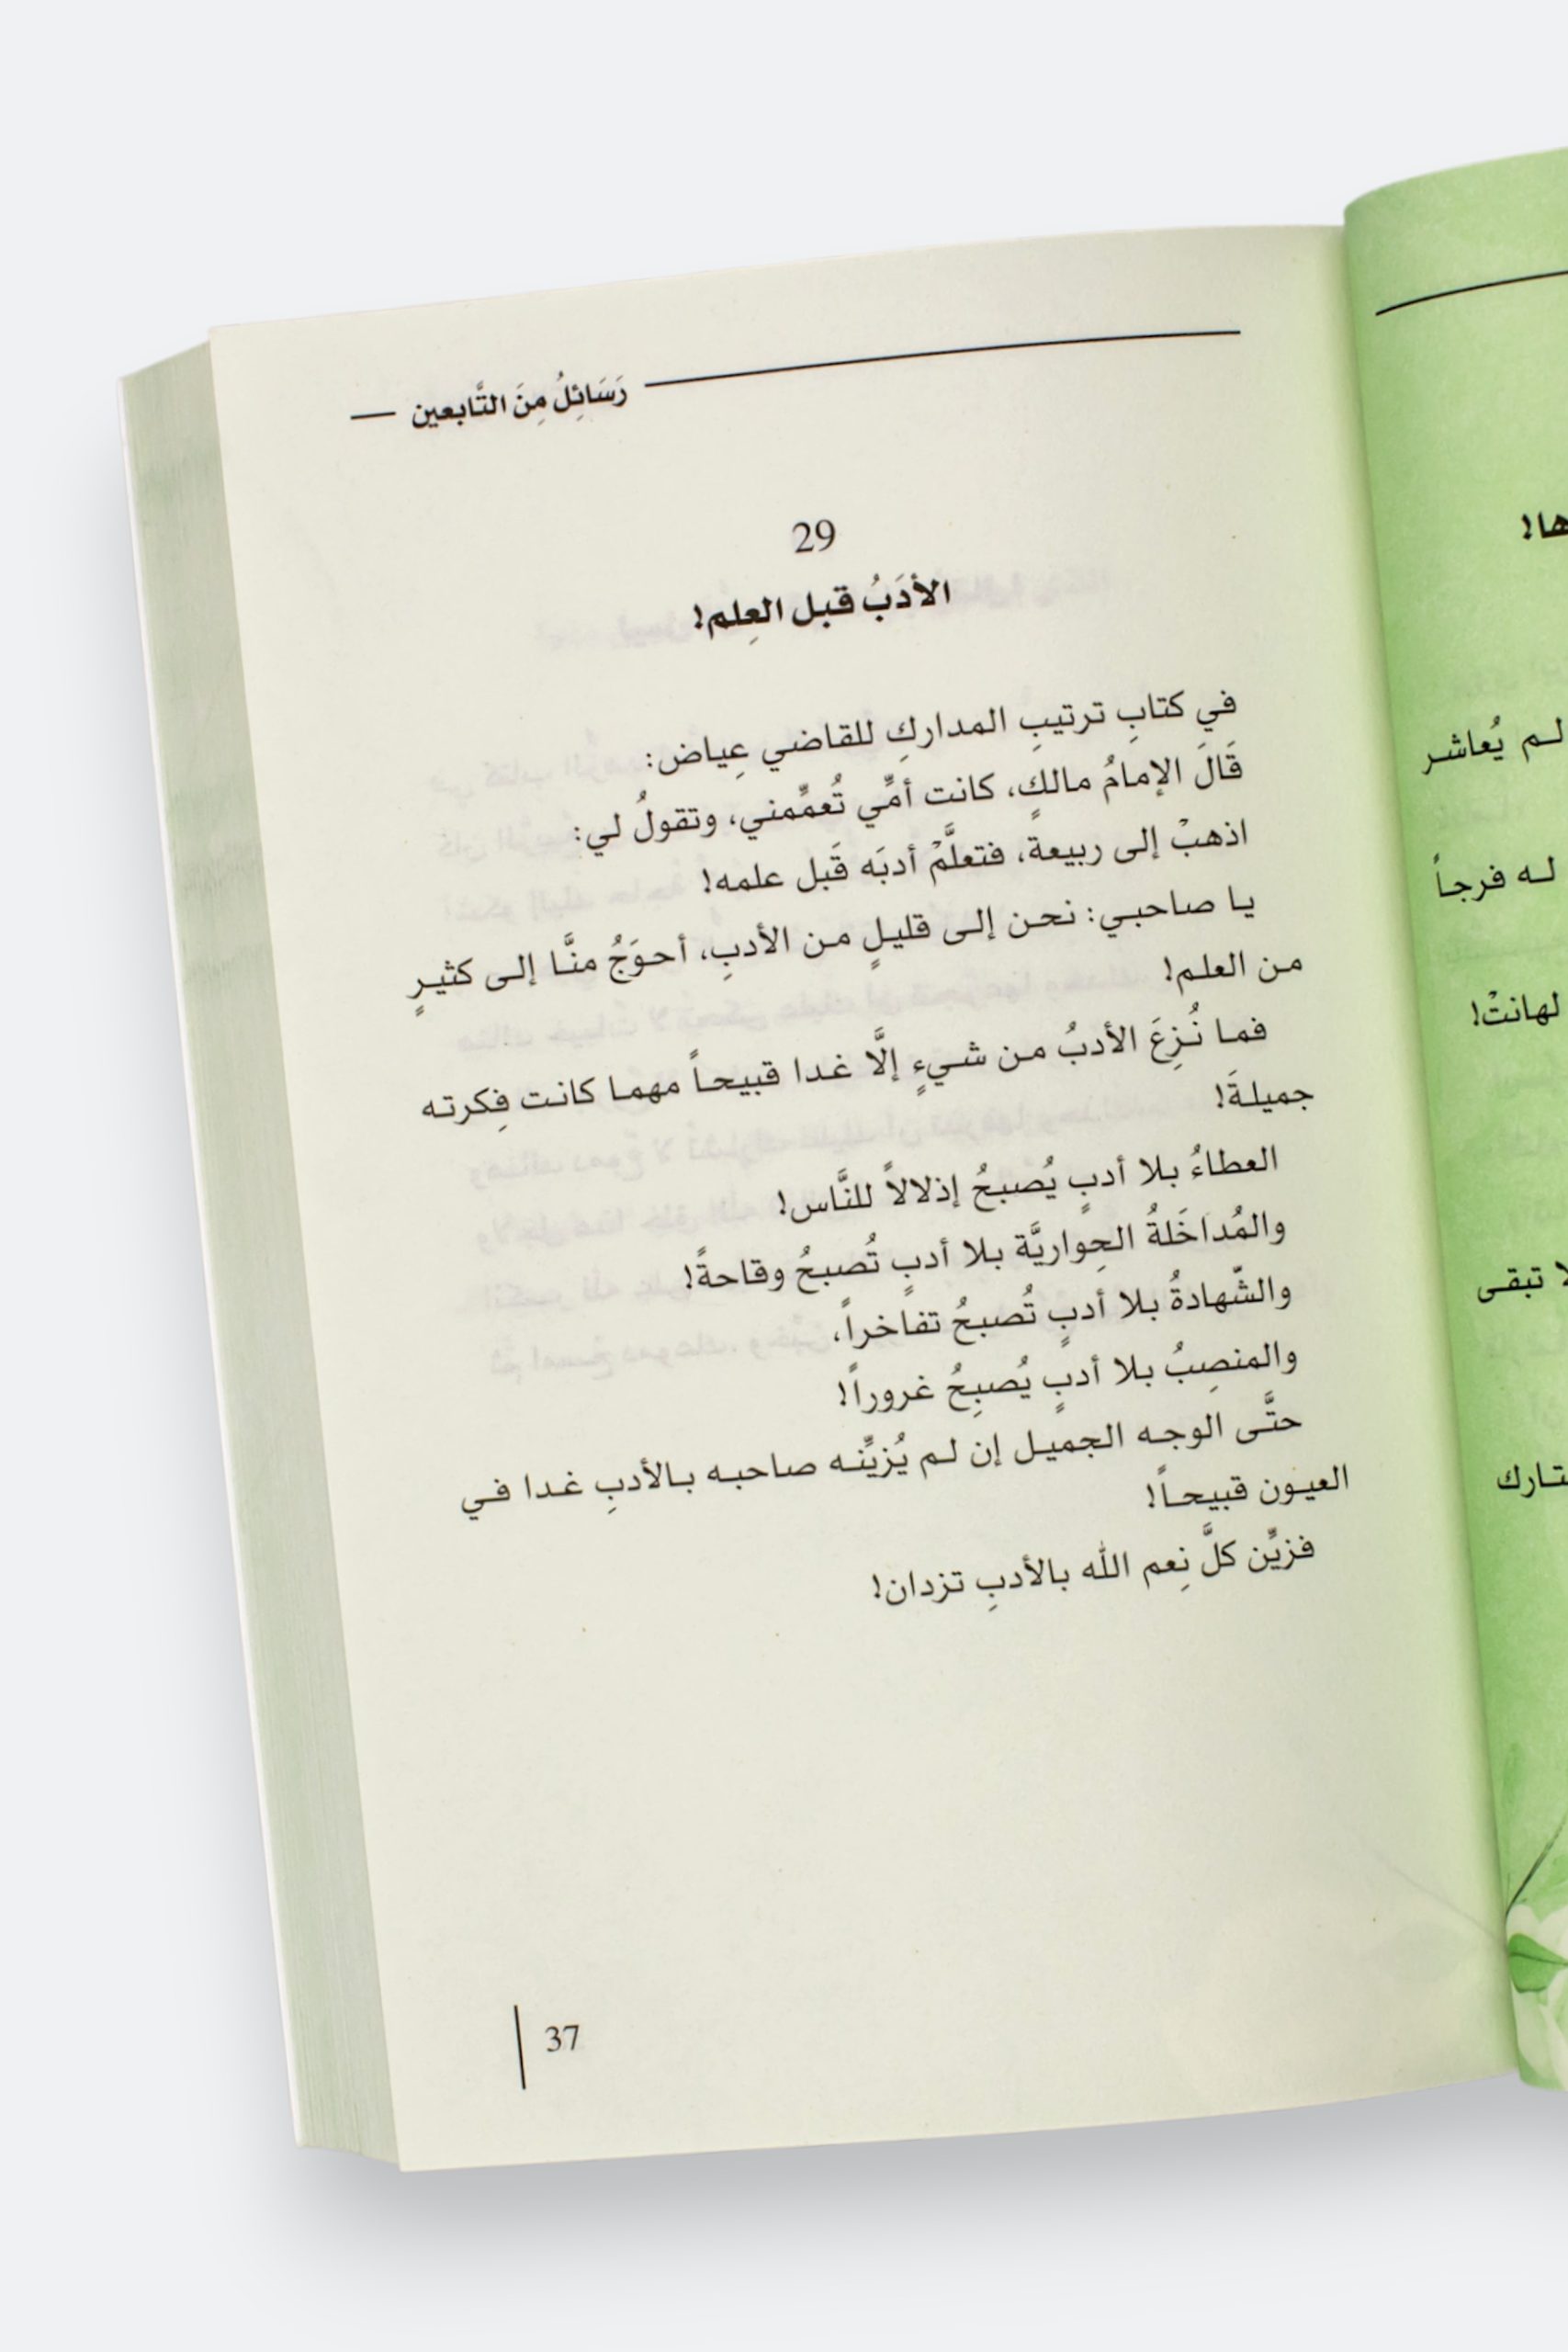 رَسَائِلُ مِنَ التَّابعين
29
الأدَبُ قبل العِلم!
في كتابِ ترتيبِ المداركِ للقاضي عِياض:
قَالَ الإمامُ مالكٍ، كانت أمِّي تُعمِّمني، وتقولُ لي:
اذهبْ إلى ربيعة، فتعلَّمْ أدبَه قَبل علمه!
يا صاحبي: نحن إلى قليلٍ من الأدبِ، أحوَجُ منَّا إلى كثيرٍ
من العلم!
فما نُزِعَ الأدبُ من شيءٍ إلَّا غدا قبيحاً مهما كانت فِكرته
جميلةَ!
العطاءُ بلا أدبٍ يُصبحُ إذلالاً للنَّاس!
والمُداخَلةُ الحِواريَّة بلا أدبٍ تُصبحُ وقاحةً!
والشّهادةُ بلا أدبٍ تُصبحُ تفاخراً،
والمنصِبُ بلا أدبٍ يُصبِحُ غروراً!
حتَّى الوجه الجميل إن لم يُزيِّنه صاحبه بالأدبِ غدا في
العيون قبيحاً!
فزيِّن كلَّ نِعم الله بالأدبِ تزدان!
37
ها!
لم يُعاشر
له فرجاً
لهانتْ!
لا تبقى